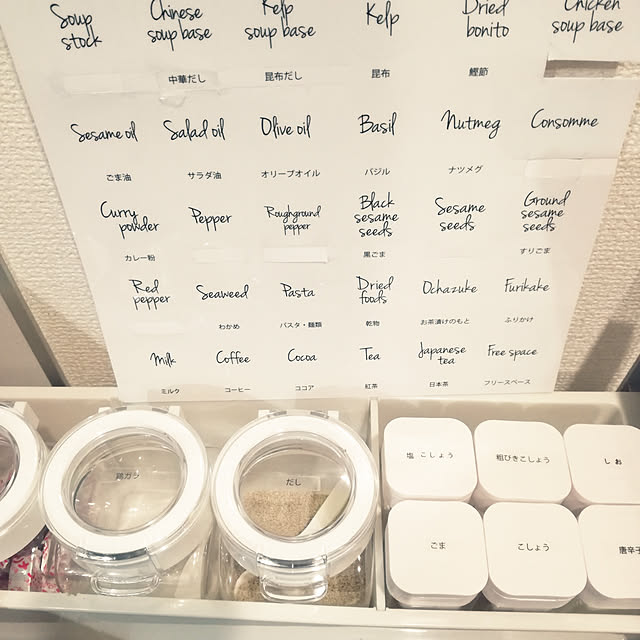 Soup
stock
Chinese
soup base
Kelp
soup base
Kelp
Dried
bonito
Chicken
soup base
中華だし
昆布だし
昆布
鰹節
Sesame oil
Salad oil
Olive oil
Basil
Nutmeg
Consomme
ごま油
サラダ油
オリーブオイル
バジル
ナツメグ
Curry
powder
Pepper
Roughground
pepper
Black
sesame
seeds
Sesame
seeds
Ground
sesame
seeds
カレー粉
黒ごま
すりごま
Red
pepper
Seaweed
Pasta
Dried
foods
Ochazuke
Furikake
わかめ
パスタ・麺類
乾物
お茶漬けのもと
ふりかけ
Milk
Coffee
Cocoa
Tea
Japanese
tea
Free space
ミルク
コーヒー
ココア
紅茶
日本茶
フリースペース
鶏ガラ
だし
塩 こしょう
粗びきこしょう
しお
ごま
こしょう
唐辛子